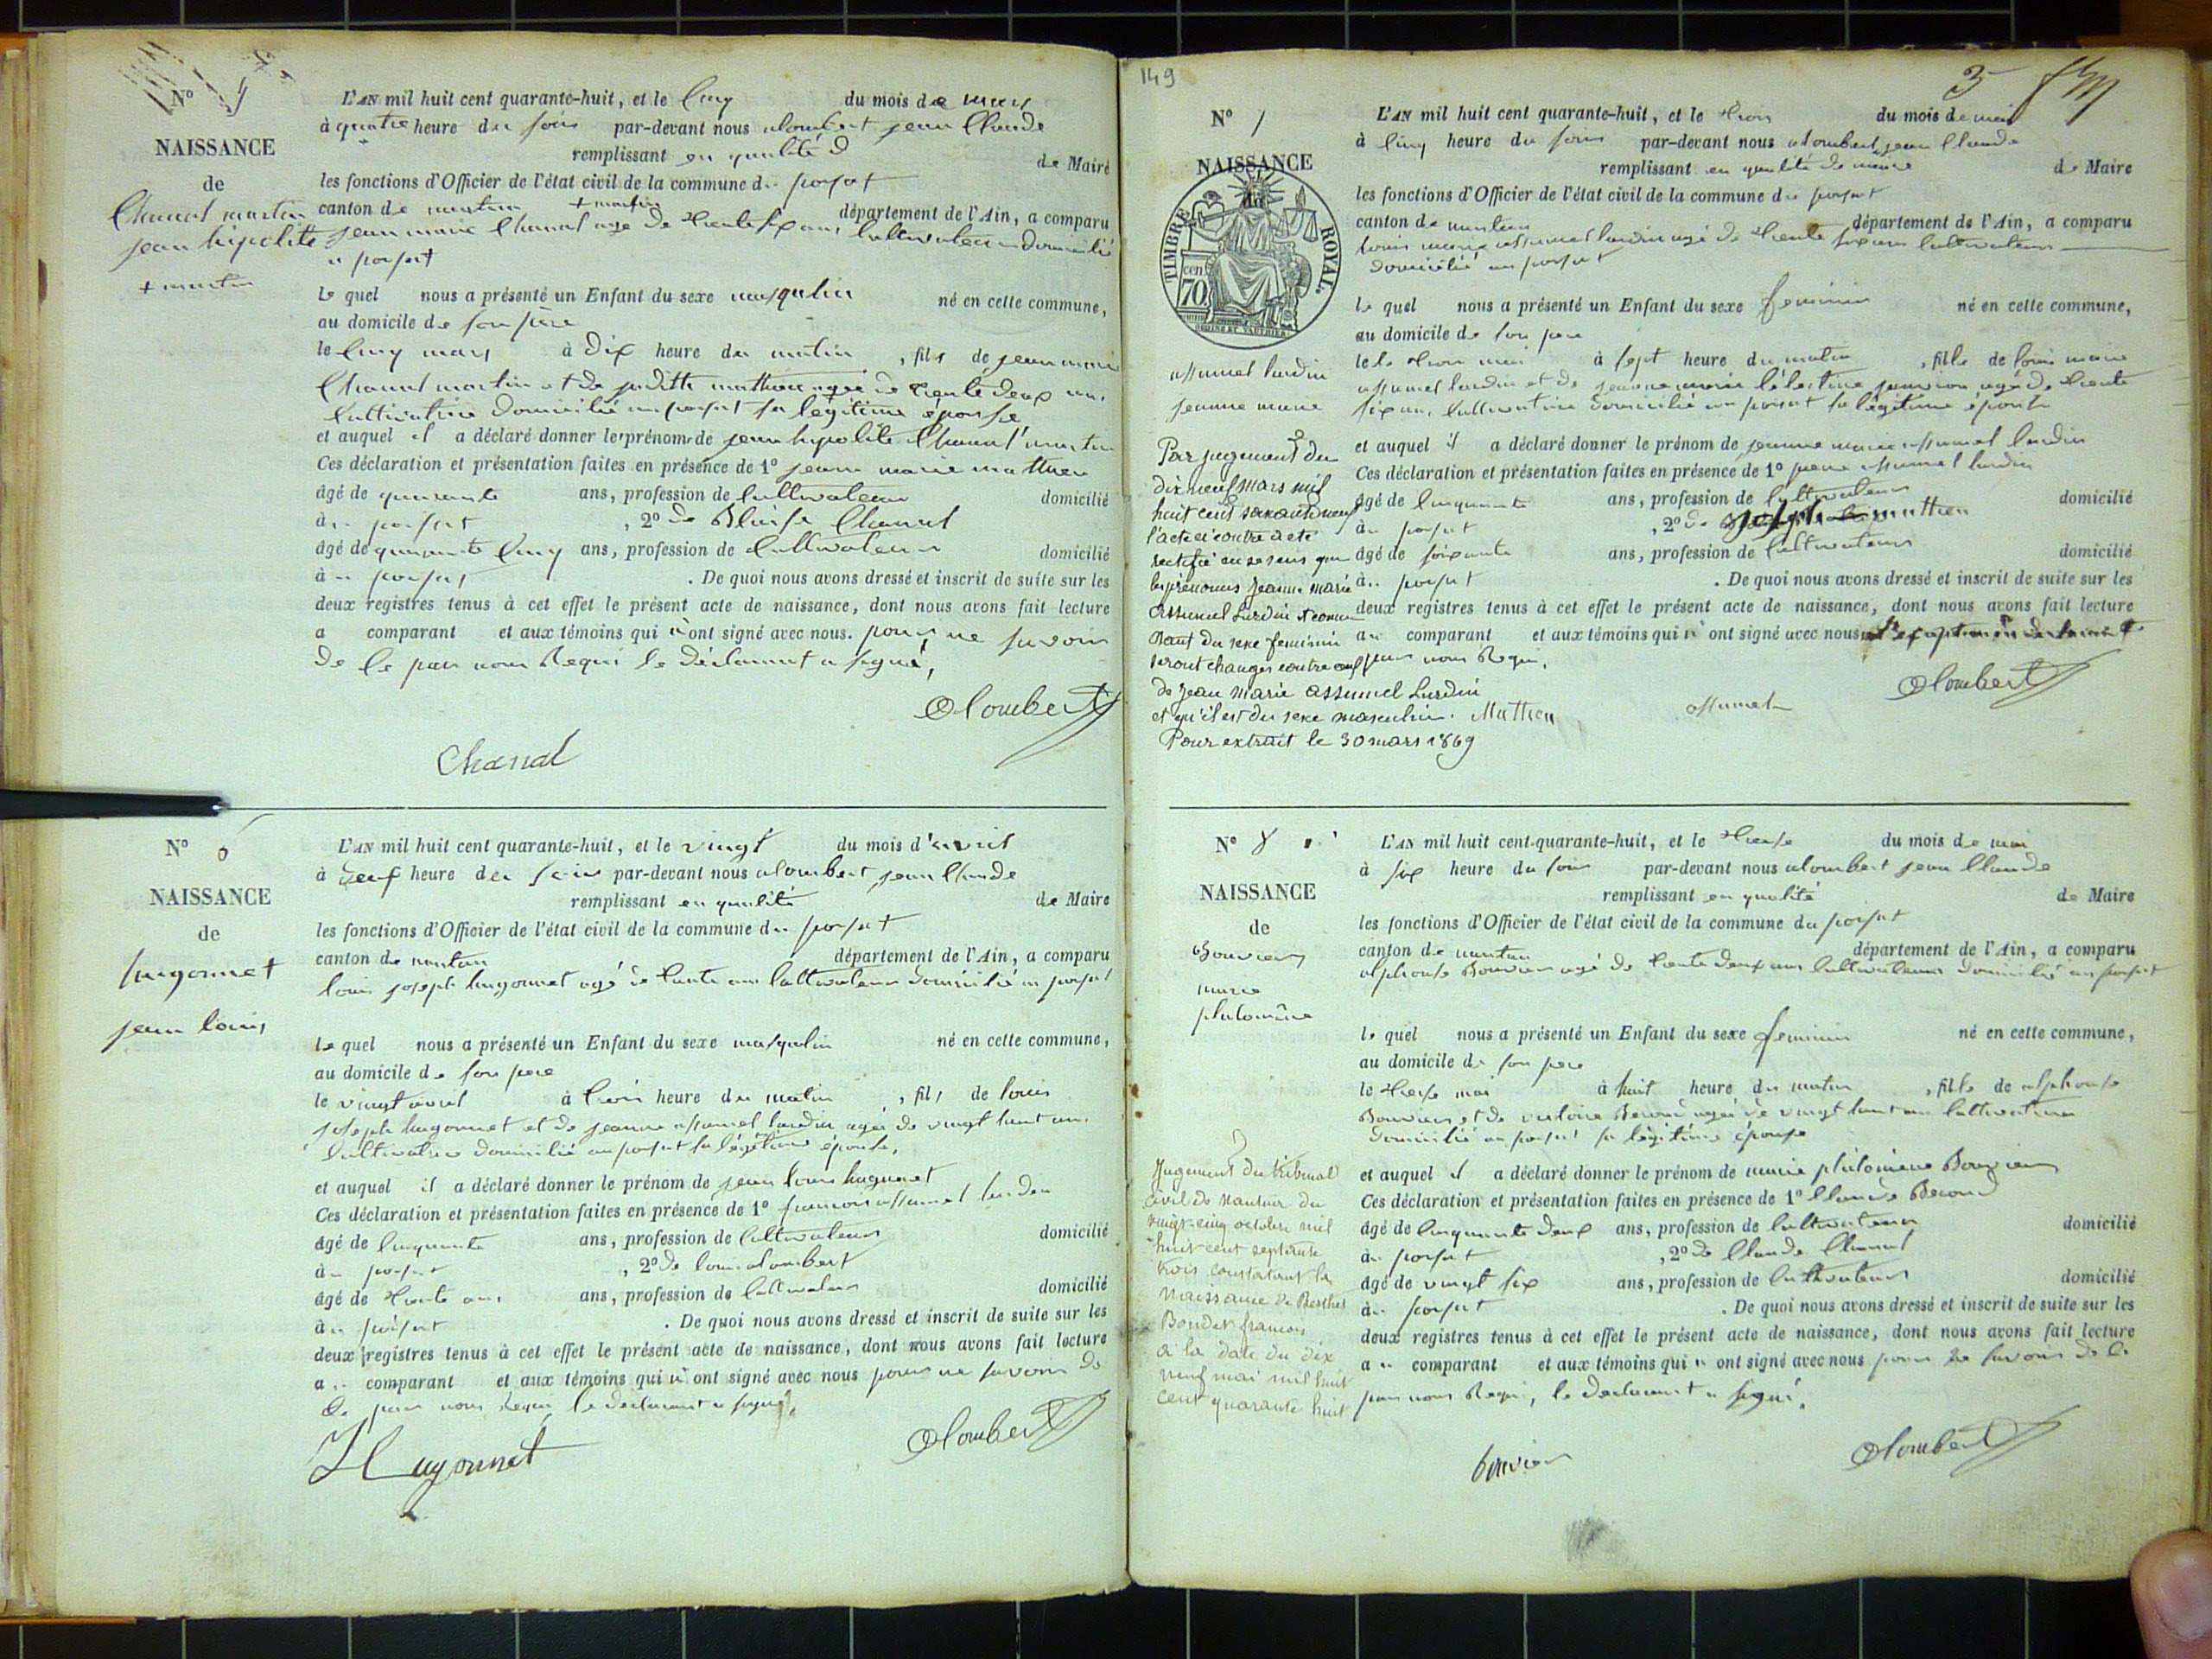 N°
NAISSANCE
de
Chanal martin
jean hipolite
+ martin
L'AN mil huit cent quarante-huit, et le Cinq du mois de mars
à quatre heure du soir par-devant nous alombert jean Claude
remplissant en qualité d de Maire
les fonctions d'Officier de l'état civil de la commune du porsat
canton de nantua + martin département de l'Ain, a comparu
jean marie Chanal agé de trente six ans Cultivateur domicilié
au porsat
le quel nous a présenté un Enfant du sexe masqulin né en cette commune,
au domicile de son père
le Cinq mars à dix heure du matin , fils de jean marie
Chanal martin et de juditte mathieu agée de trente deux ans
Cultivatrice domicilié au porsat sa légitime épouse
et auquel il a déclaré donner le prénom de jean hypolite Chanal martin
Ces déclaration et présentation faites en présence de 1° jean marie mathieu
âgé de quarante ans, profession de Cultivateur domicilié
au porsat , 2° de Blaise Chanal
âgé de quarante Cinq ans, profession de Cultivateur domicilié
au porsat . De quoi nous avons dressé et inscrit de suite sur les
deux registres tenus à cet effet le présent acte de naissance, dont nous avons fait lecture
au comparant et aux témoins qui n'ont signé avec nous. pour ne savoir
de ce par nous Requi le déclarant a signé,
Alombert
Chanal
N° 6
NAISSANCE
de
hugonnet
jean louis
L'AN mil huit cent quarante-huit, et le vingt du mois d'avril
à heure du soir par-devant nous alombert jean Claude
remplissant en qualité de Maire
les fonctions d'Officier de l'état civil de la commune du porsat
canton de nantua département de l'Ain, a comparu
louis joseph hugonnet agé de trente ans Cultivateur domicilié au porsat
le quel nous a présenté un Enfant du sexe masqulin né en cette commune,
au domicile de son pere
le vingt avril à trois heure du matin , fils de louis
joseph hugonnet et de jeanne assumel lurdin agée de vingt huit ans
Cultivatrice domicilié au porsat sa légitime épouse,
et auquel il a déclaré donner le prénom de jean louis hugonnet
Ces déclaration et présentation faites en présence de 1° francois assumel lurdin
âgé de Cinquante ans, profession de Cultivateur domicilié
au porsat , 2° de louis alombert
âgé de trente ans ans, profession de Cultivateur domicilié
au porsat . De quoi nous avons dressé et inscrit de suite sur les
deux registres tenus à cet effet le présent acte de naissance, dont nous avons fait lecture
au comparant et aux témoins qui n'ont signé avec nous pour ne savoir de
Ce par nous Requi le déclarant a signé,
Alombert
Hugonnet
149
3
N° 7
NAISSANCE
de
TIMBRE ROYAL
70 cen.
assumel lurdin
jeanne marie
Par jugement du
dix neuf mars mil
huit cent soixante neuf
l'acte ci contre a été
rectifié en ce sens que
les prénoms Jeanne Marie
Assumel Lurdin
du sexe féminin
seront changés contre ceux
de Jean Marie Assumel Lurdin
et qu'il est du sexe masculin.
Pour extrait le 30 mars 1869
L'AN mil huit cent quarante-huit, et le trois du mois de mai
à Cinq heure du soir par-devant nous alombert jean Claude
remplissant en qualité de maire de Maire
les fonctions d'Officier de l'état civil de la commune du porsat
canton de nantua département de l'Ain, a comparu
louis marie assumel lurdin agé de trente six ans Cultivateur
domicilié au porsat
le quel nous a présenté un Enfant du sexe feminin né en cette commune,
au domicile de son pere
le trois mai à sept heure du matin , fille de louis marie
assumel lurdin et de jeanne marie Célestine agé de trente
six ans, Cultivatrice domicilié au porsat sa légitime épouse
et auquel il a déclaré donner le prénom de jeanne marie assumel lurdin
Ces déclaration et présentation faites en présence de 1° assumel lurdin
âgé de Cinquante ans, profession de Cultivateur domicilié
au porsat , 2° de joseph mathieu
âgé de soixante ans, profession de Cultivateur domicilié
au porsat . De quoi nous avons dressé et inscrit de suite sur les
deux registres tenus à cet effet le présent acte de naissance, dont nous avons fait lecture
au comparant et aux témoins qui n'ont signé avec nous
par nous Requi,
Mathieu
assumel
Alombert
N° 8
NAISSANCE
de
Bouvier
marie
philomène
Jugement du tribunal
civil de Nantua du
vingt-cinq octobre mil
huit cent septante
trois constatant la
naissance de Berthet
Bondet francois
à la date du dix
neuf mai mil huit
cent quarante huit
L'AN mil huit cent quarante-huit, et le treise du mois de mai
à six heure du soir par-devant nous alombert jean Claude
remplissant en qualité de Maire
les fonctions d'Officier de l'état civil de la commune du porsat
canton de nantua département de l'Ain, a comparu
alphonse Bouvier agé de trente deux ans Cultivateur domicilié au porsat
le quel nous a présenté un Enfant du sexe feminin né en cette commune,
au domicile de son pere
le treise mai à huit heure du matin , fille de alphonse
Bouvier et de victoire Beroud agée de vingt huit ans Cultivatrice
domicilié au porsat sa légitime épouse
et auquel il a déclaré donner le prénom de marie philomène Bouvier
Ces déclaration et présentation faites en présence de 1° Claude Beroud
âgé de Cinquante deux ans, profession de Cultivateur domicilié
au porsat , 2° de Claude Chanal
âgé de vingt six ans, profession de Cultivateur domicilié
au porsat . De quoi nous avons dressé et inscrit de suite sur les
deux registres tenus à cet effet le présent acte de naissance, dont nous avons fait lecture
au comparant et aux témoins qui n'ont signé avec nous pour ne savoir de ce
par nous Requi, le déclarant a signé,
bouvier
Alombert